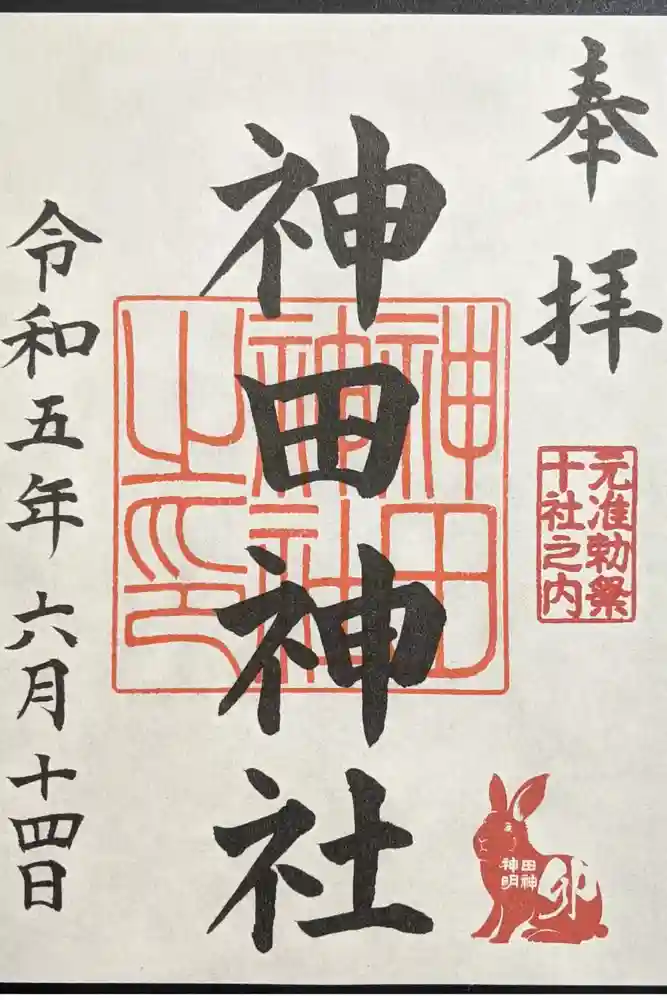 奉拝
元准勅祭
十社之内
神田神社
神田
神社
之印
田神
神明
卯
令和五年六月十四日